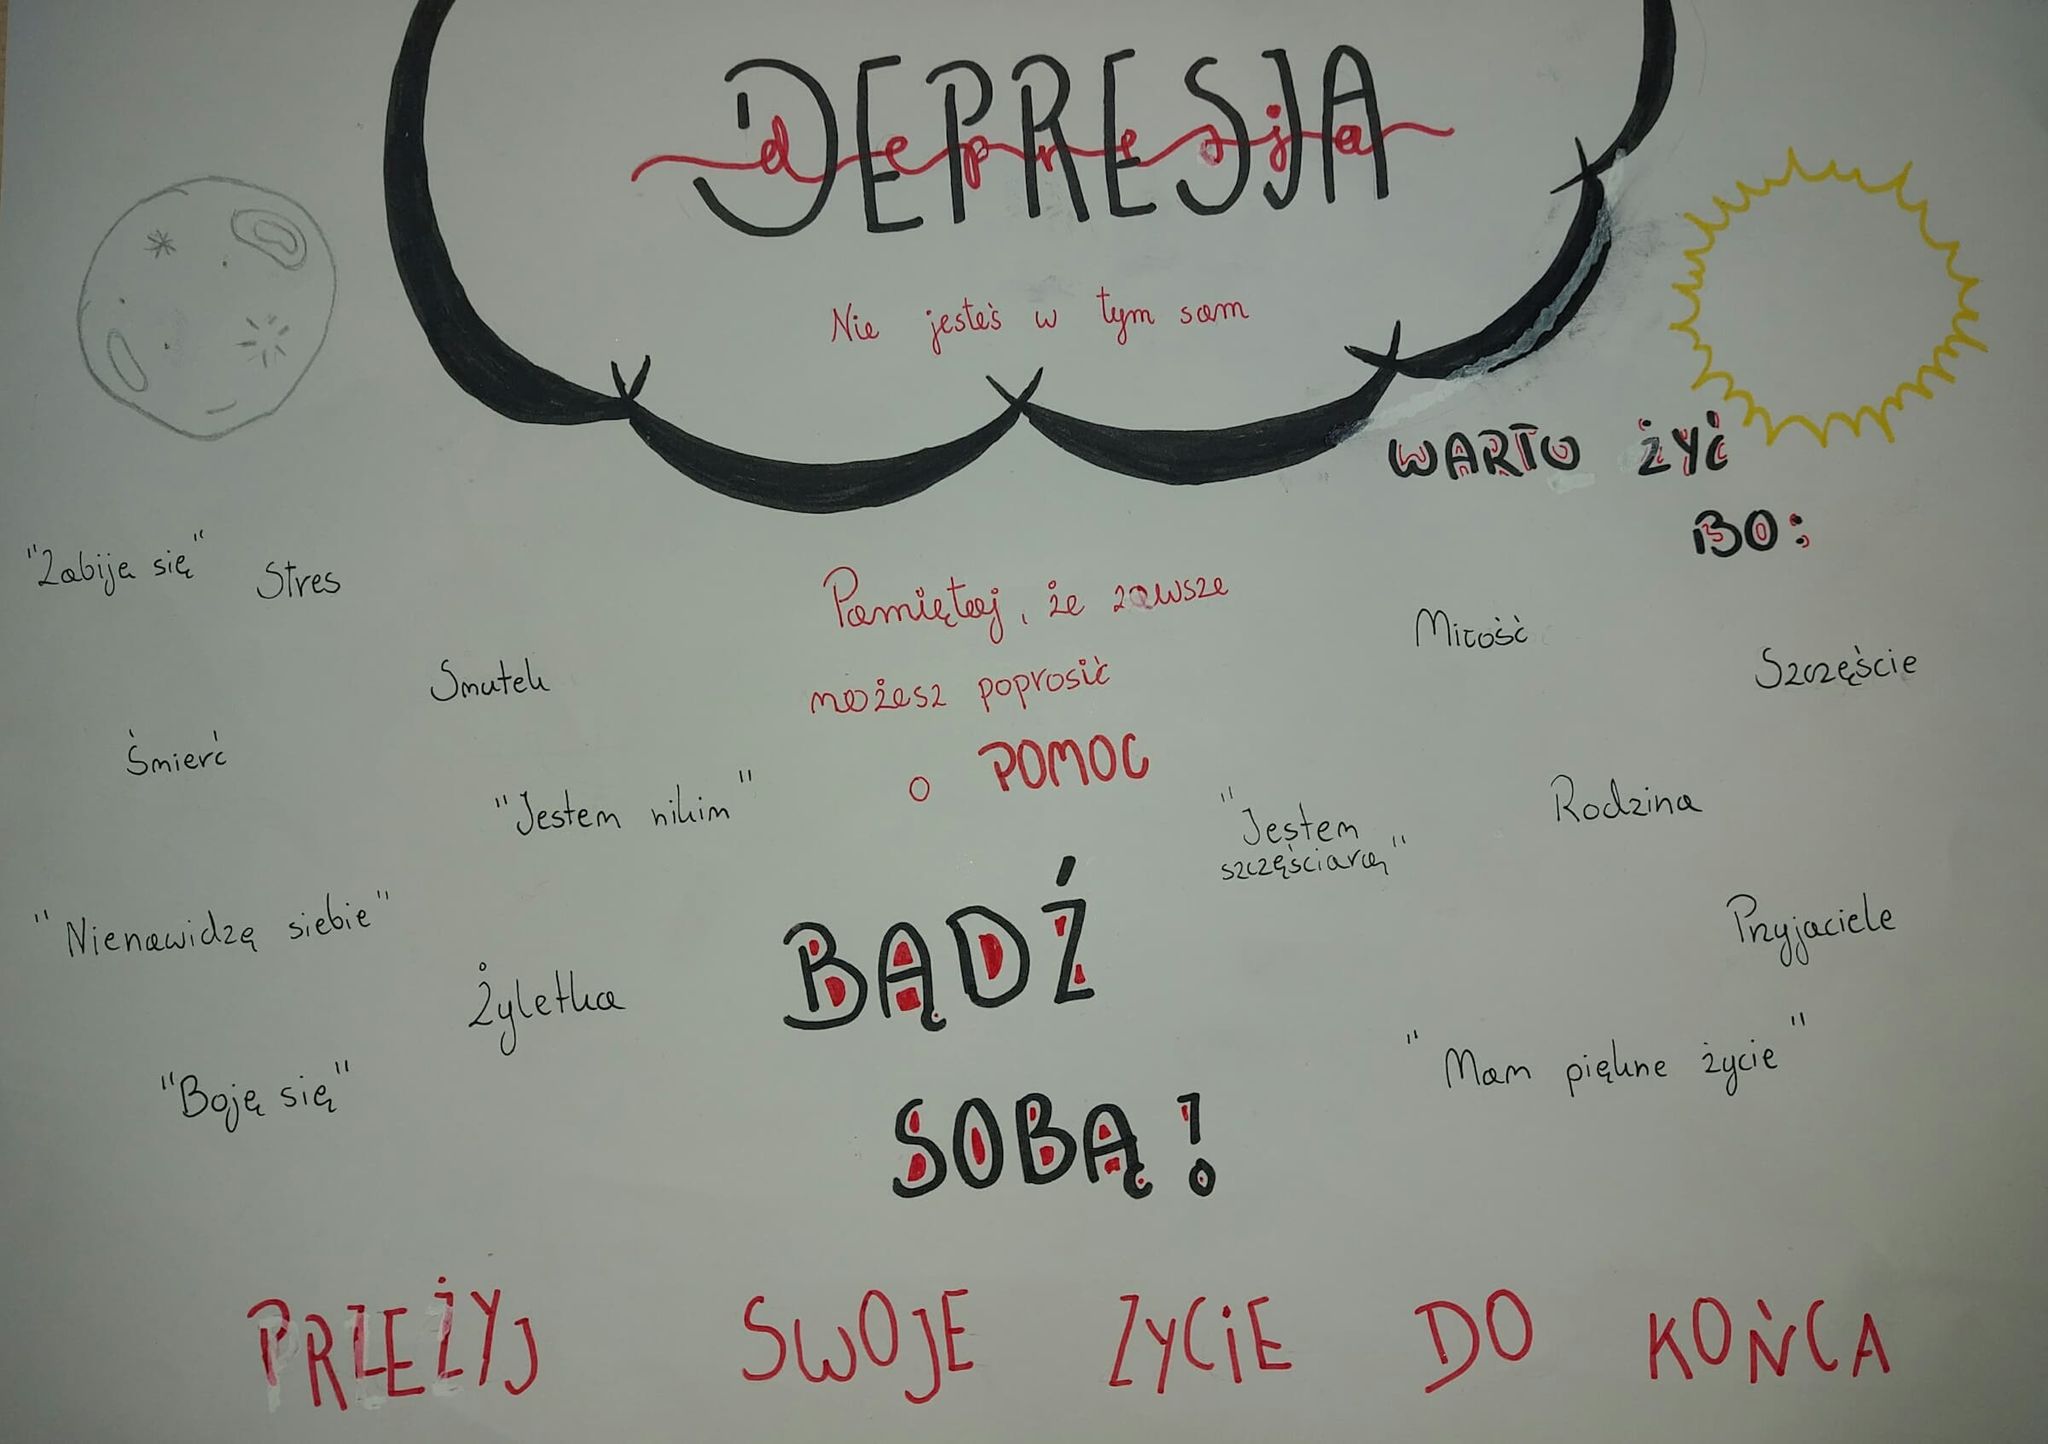 DEPRESJA
depresja
Nie jesteś w tym sam
WARTO ŻYĆ
BO:
"Zabije się"
Stres
Smutek
Śmierć
"Jestem nikim"
"Nienawidzę siebie"
Żyletka
"Boję się"
Pamiętaj, że zawsze
możesz poprosić
o POMOC
BĄDŹ
SOBĄ!
Miłość
Szczęście
Rodzina
"Jestem
szczęściarą"
Przyjaciele
"Mam piękne życie"
PRZEŻYJ SWOJE ZYCIE DO KOŃCA